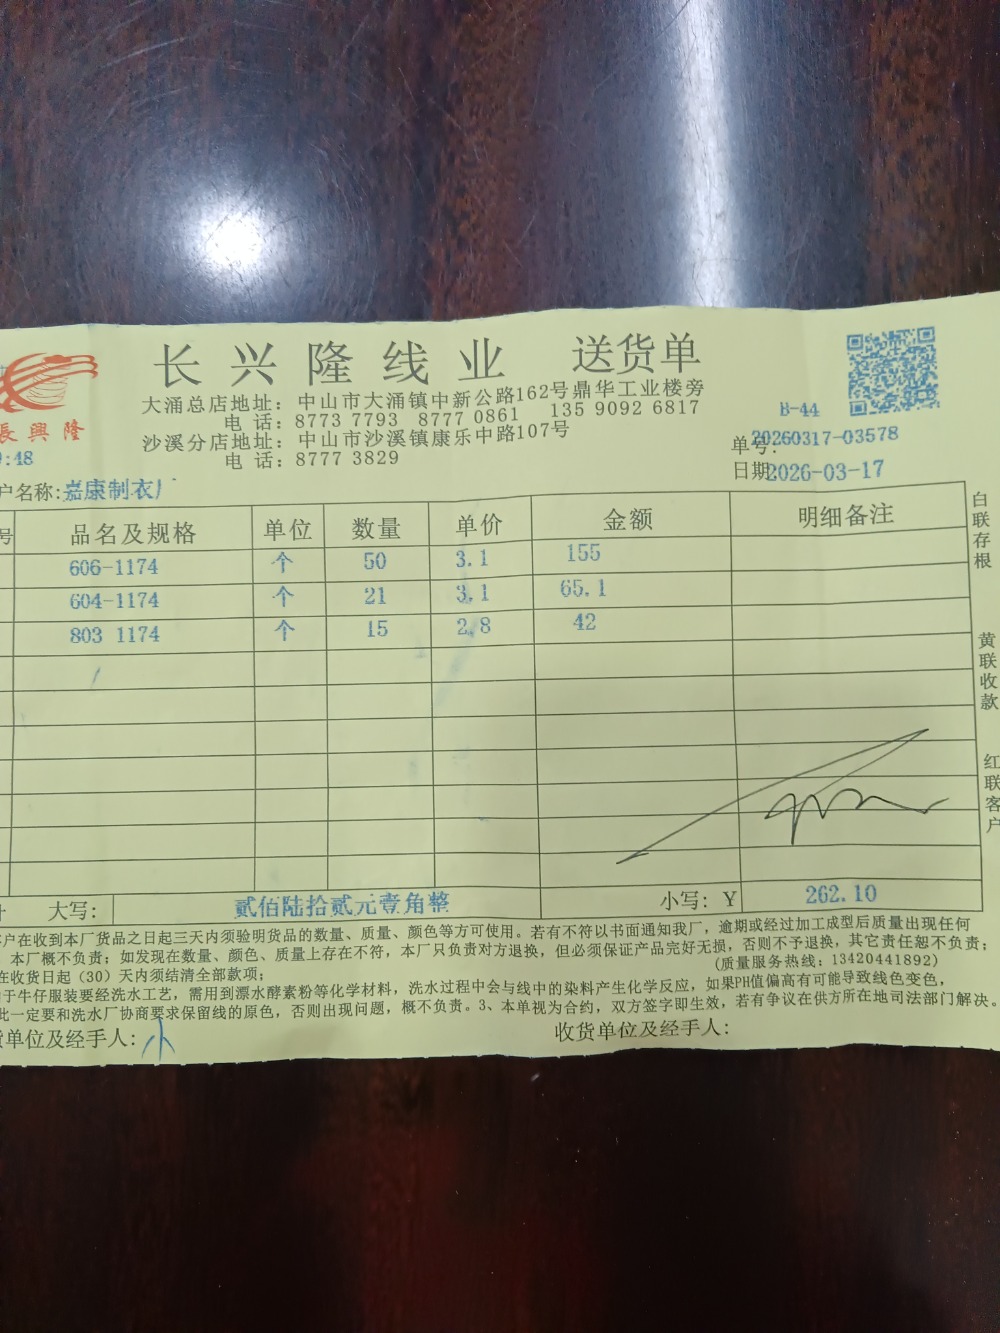 长兴隆线业 送货单
大涌总店地址：中山市大涌镇中新公路162号鼎华工业楼旁
电 话：8773 7793 8777 0861 135 9092 6817
沙溪分店地址：中山市沙溪镇康乐中路107号
电 话：8777 3829
長興隆
:48
B-44
单号:20260317-03578
日期2026-03-17
户名称:嘉康制衣厂
号 品名及规格 单位 数量 单价 金额 明细备注
606-1174 个 50 3.1 155
604-1174 个 21 3.1 65.1
803 1174 个 15 2.8 42
白联存根
黄联收款
红联客户
大写: 贰佰陆拾贰元壹角整 小写: Y 262.10
客户在收到本厂货品之日起三天内须验明货品的数量、质量、颜色等方可使用。若有不符以书面通知我厂，逾期或经过加工成型后质量出现任何
，本厂概不负责；如发现在数量、颜色、质量上存在不符，本厂只负责对方退换，但必须保证产品完好无损，否则不予退换，其它责任恕不负责；
在收货日起（30）天内须结清全部款项； (质量服务热线：13420441892)
于牛仔服装要经洗水工艺，需用到漂水酵素粉等化学材料，洗水过程中会与线中的染料产生化学反应，如果PH值偏高有可能导致线色变色，
此一定要和洗水厂协商要求保留线的原色，否则出现问题，概不负责。3、本单视为合约，双方签字即生效，若有争议在供方所在地司法部门解决。
货单位及经手人: 小 收货单位及经手人: